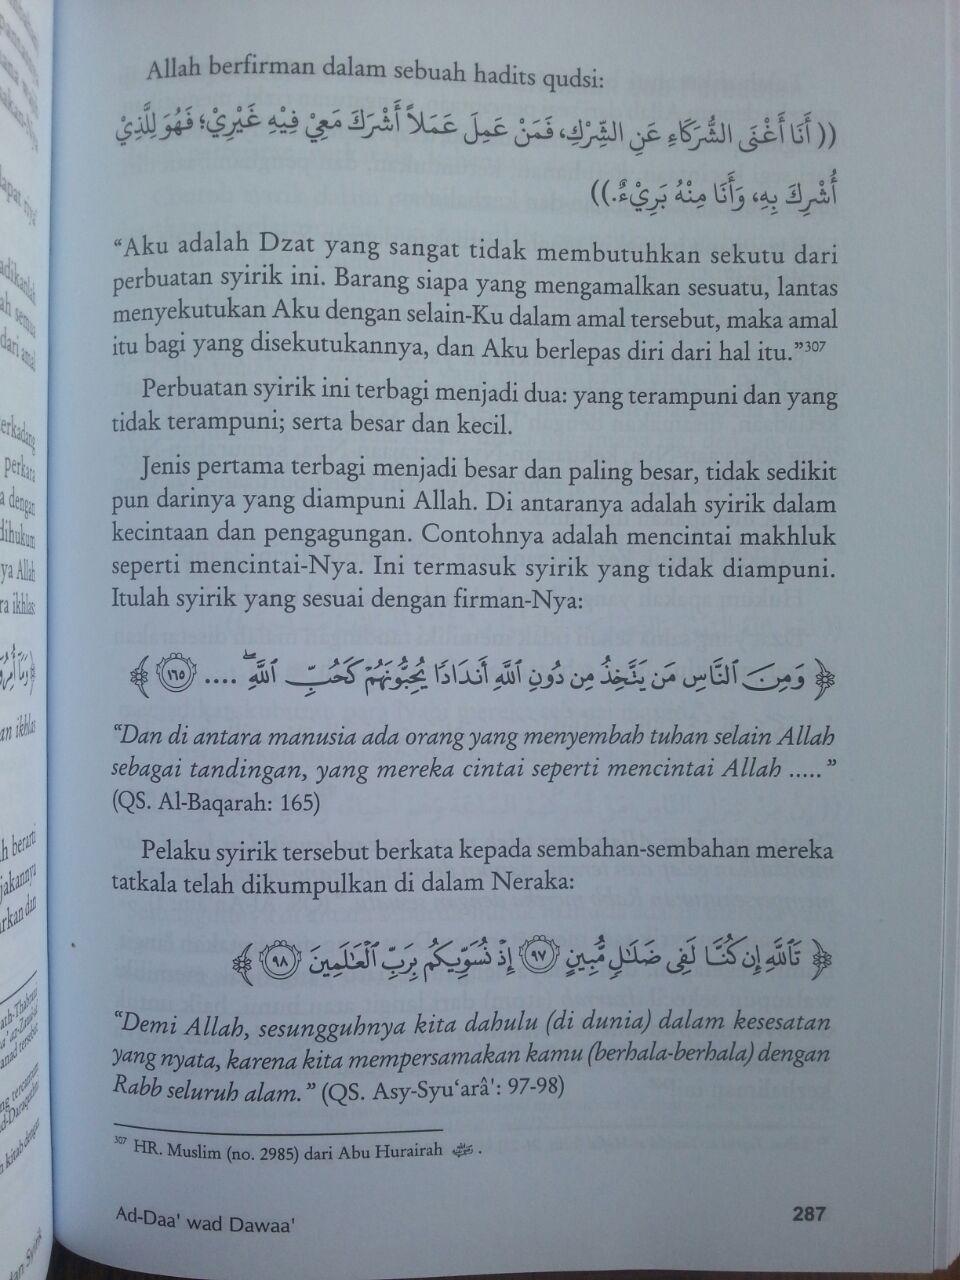 Allah berfirman dalam sebuah hadits qudsi:
(( أَنَا أَغْنَى الشُّرَكَاءِ عَنِ الشِّرْكِ، فَمَنْ عَمِلَ عَمَلاً أَشْرَكَ مَعِيْ فِيْهِ غَيْرِيْ؛ فَهُوَ لِلَّذِيْ
أُشْرِكَ بِهِ، وَأَنَا مِنْهُ بَرِيْءٌ.))
“Aku adalah Dzat yang sangat tidak membutuhkan sekutu dari
perbuatan syirik ini. Barang siapa yang mengamalkan sesuatu, lantas
menyekutukan Aku dengan selain-Ku dalam amal tersebut, maka amal
itu bagi yang disekutukannya, dan Aku berlepas diri dari hal itu.”307
Perbuatan syirik ini terbagi menjadi dua: yang terampuni dan yang
tidak terampuni; serta besar dan kecil.
Jenis pertama terbagi menjadi besar dan paling besar, tidak sedikit
pun darinya yang diampuni Allah. Di antaranya adalah syirik dalam
kecintaan dan pengagungan. Contohnya adalah mencintai makhluk
seperti mencintai-Nya. Ini termasuk syirik yang tidak diampuni.
Itulah syirik yang sesuai dengan firman-Nya:
﴿ وَمِنَ ٱلنَّاسِ مَن يَتَّخِذُ مِن دُونِ ٱللَّهِ أَندَادًا يُحِبُّونَهُمْ كَحُبِّ ٱللَّهِ ۖ .... ١٦٥ ﴾
“Dan di antara manusia ada orang yang menyembah tuhan selain Allah
sebagai tandingan, yang mereka cintai seperti mencintai Allah .....”
(QS. Al-Baqarah: 165)
Pelaku syirik tersebut berkata kepada sembahan-sembahan mereka
tatkala telah dikumpulkan di dalam Neraka:
﴿ تَٱللَّهِ إِن كُنَّا لَفِى ضَلَـٰلٍ مُّبِينٍ ٩٧ إِذْ نُسَوِّيكُم بِرَبِّ ٱلْعَـٰلَمِينَ ٩٨ ﴾
“Demi Allah, sesungguhnya kita dahulu (di dunia) dalam kesesatan
yang nyata, karena kita mempersamakan kamu (berhala-berhala) dengan
Rabb seluruh alam.” (QS. Asy-Syu‘arâ': 97-98)
307 HR. Muslim (no. 2985) dari Abu Hurairah .
Ad-Daa' wad Dawaa'
287